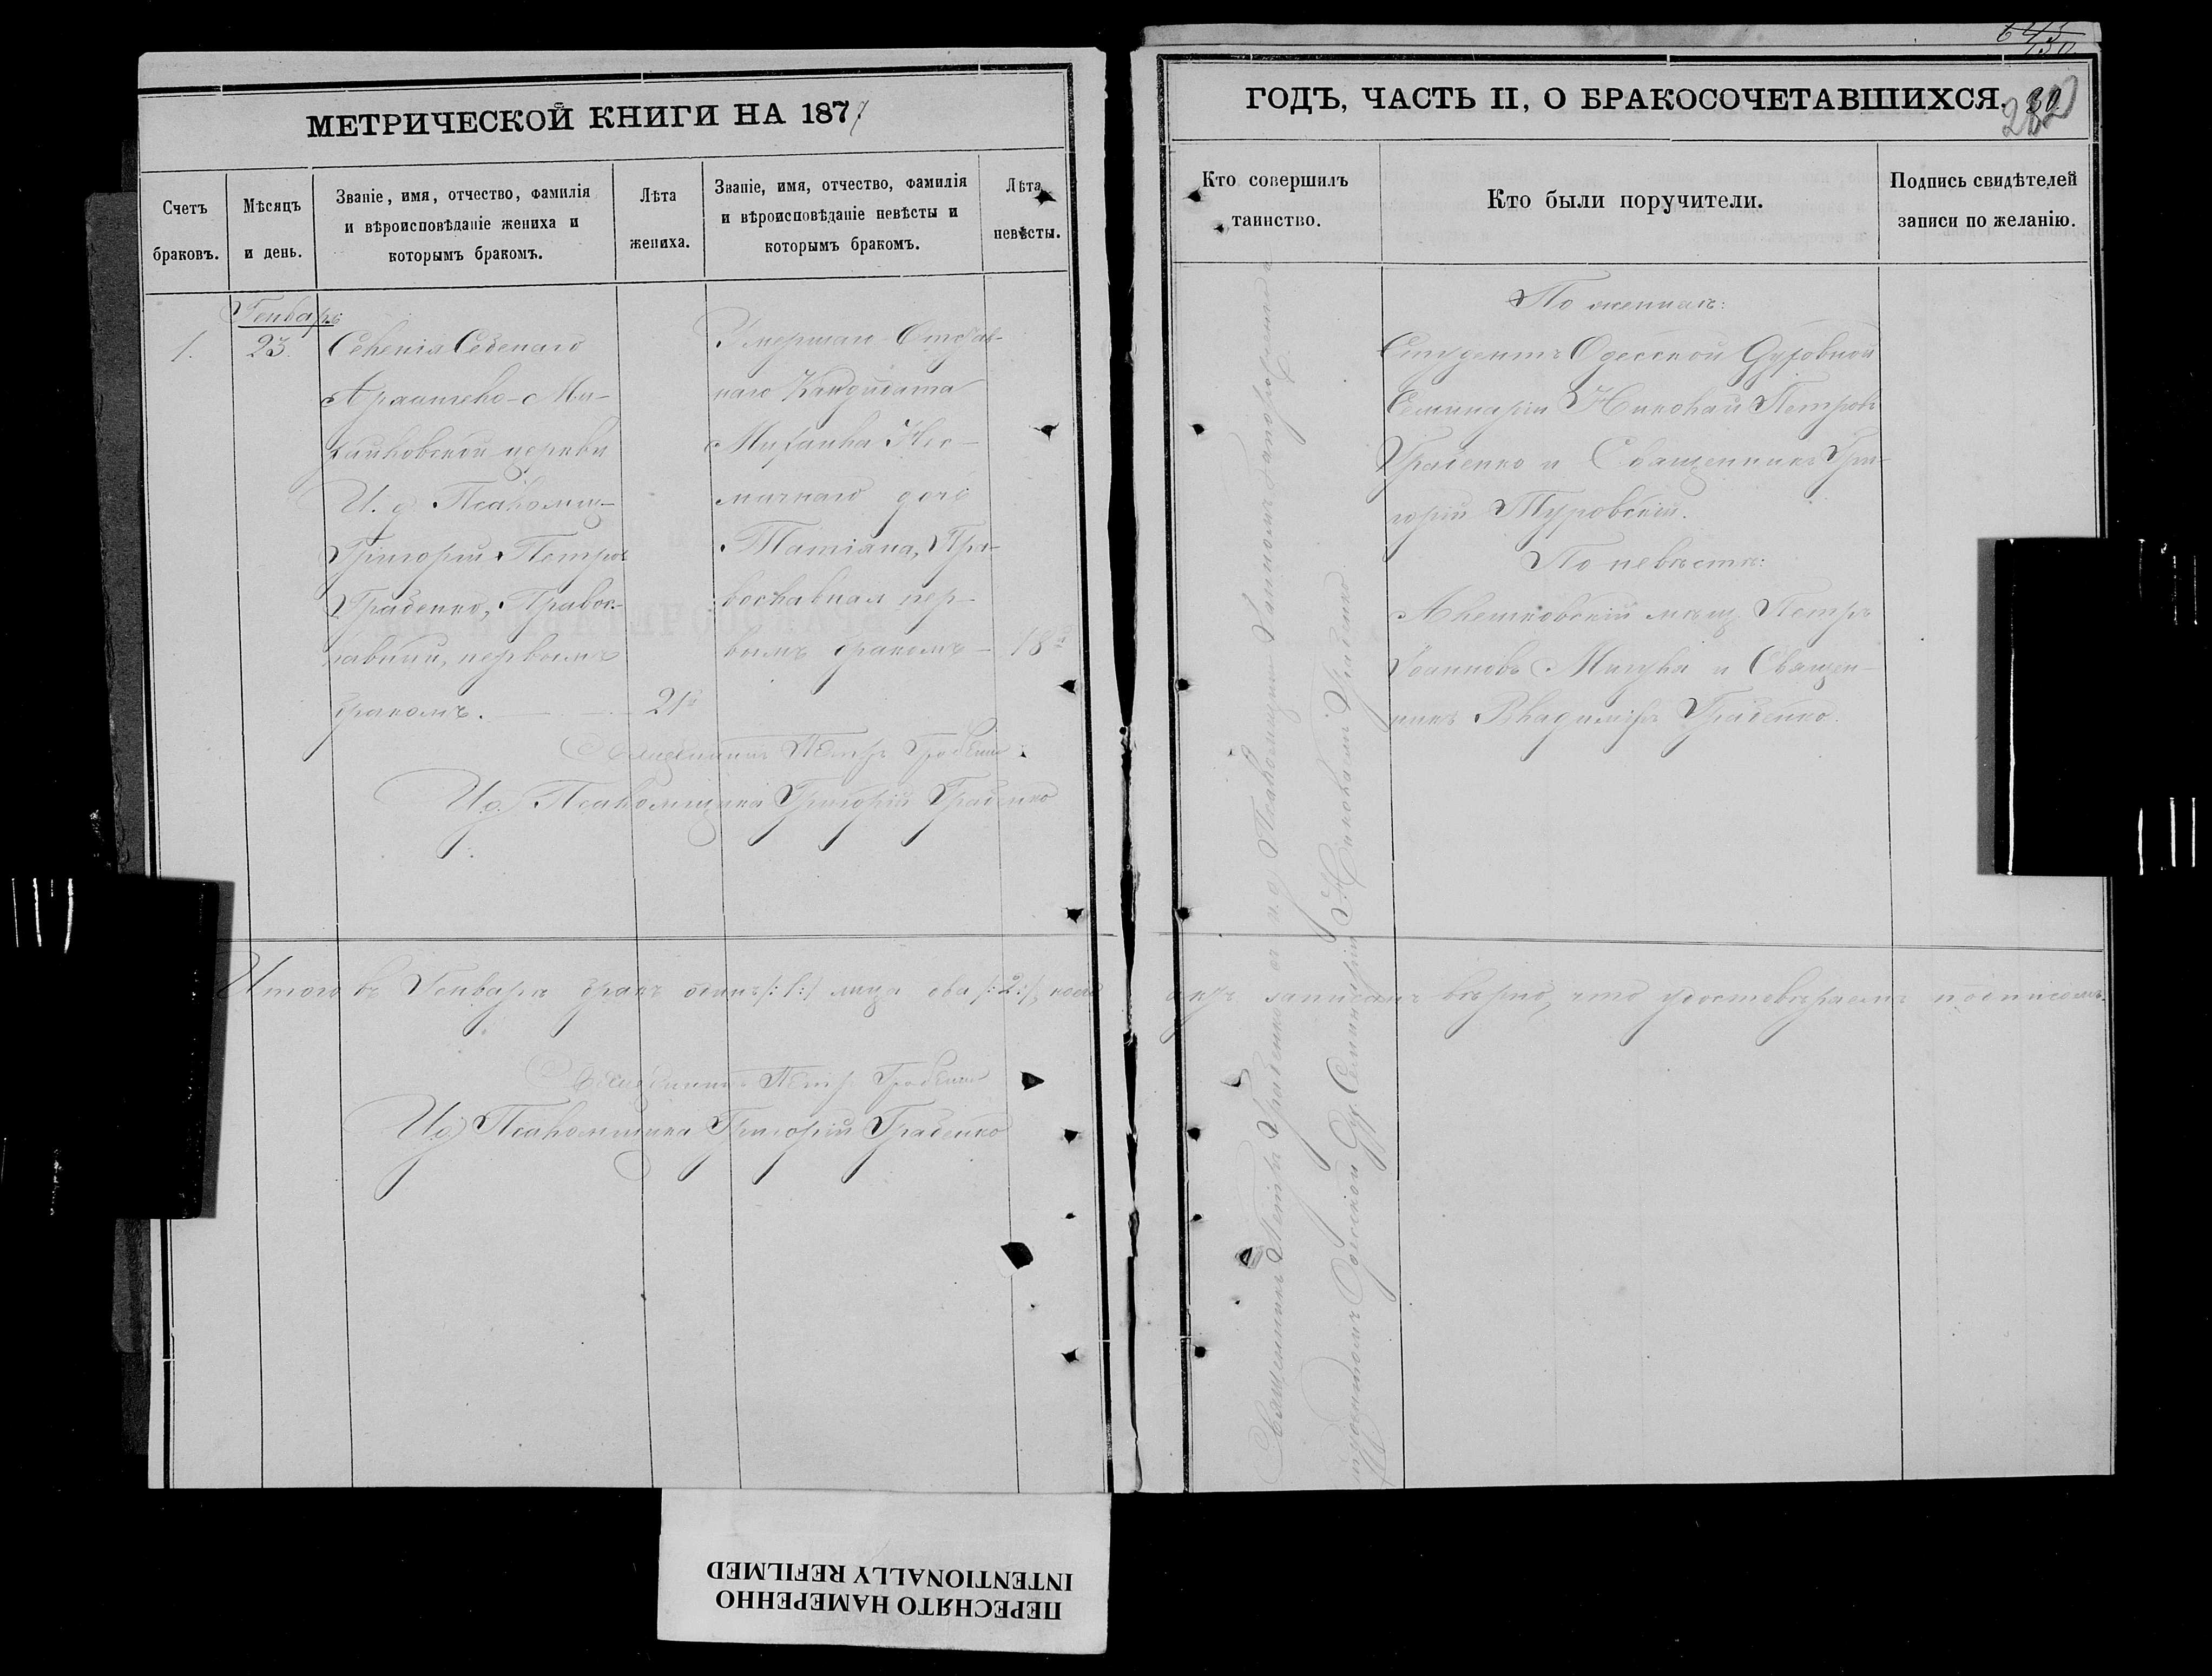 МЕТРИЧЕСКОЙ КНИГИ НА 1877
Счетъ браковъ.
Мѣсяцъ и день.
Званіе, имя, отчество, фамилія
и вѣроисповѣданіе жениха и
которымъ бракомъ.
Лѣта жениха.
Званіе, имя, отчество, фамилія
и вѣроисповѣданіе невѣсты и
которымъ бракомъ.
Лѣта невѣсты.
Генварь
1.
23.
Селенія
Михайловской церкви
И. д. Псаломщ.
Григорій Петровъ
Граденко, Правос-
лавный, первымъ
бракомъ.
21
Умершаго
наго Кандидата
Михаила
дочь
Татіана, Пра-
вославная пер-
вымъ бракомъ
18
Священникъ Петръ Граденко
И.д. Псаломщика Григорій Граденко
Итого въ Генварѣ бракъ одинъ /:1:/ лица два /:2:/,
Священникъ Петръ Граденко
И.д. Псаломщика Григорій Граденко
ГОДЪ, ЧАСТЬ II, О БРАКОСОЧЕТАВШИХСЯ.
Кто совершилъ
таинство.
Кто были поручители.
Подпись свидѣтелей
записи по желанію.
Священникъ Петръ Граденко съ и. д. Псаломщика
студентомъ Одесской Дух. Семинаріи Николаемъ Граденко
По женихѣ:
Студентъ Одесской Духовной
Семинаріи Николай Петровъ
Граденко и Священникъ Гри-
горій Туровскій.
По невѣстѣ:
Алешковскій мѣщ. Петръ
Іоанновъ и Священ-
никъ Владиміръ Граденко.
записанъ вѣрно, что удостовѣряемъ подписомъ.
ПЕРЕСНЯТО НАМЕРЕННО
INTENTIONALLY REFILMED